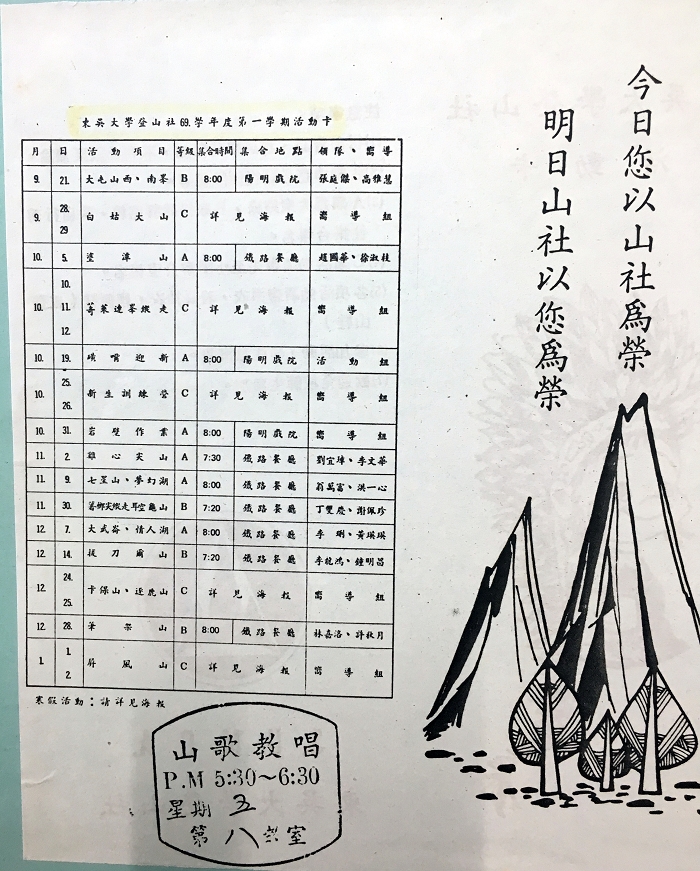 今日您以山社爲榮
明日山社以您爲榮
東吳大學登山社69.學年度第一學期活動卡
月 日 活動項目 等級 集合時間 集合地點 領隊、嚮導
9. 21. 大屯山西、南峯 B 8:00 陽明戲院 張庭傑、高雅慧
9. 28. 29 白姑大山 C 詳見海報 嚮導組
10. 5. 塗潭山 A 8:00 鐵路餐廳 趙國華、徐淑枝
10. 10. 11. 12. 萊連峯縱走 C 詳見海報 嚮導組
10. 19. 磺嘴迎新 A 8:00 陽明戲院 活動組
10. 25. 26. 新生訓練營 C 詳見海報 嚮導組
10. 31. 岩壁作業 A 8:00 陽明戲院 嚮導組
11. 2. 雞心尖山 A 7:30 鐵路餐廳 劉宜埻、李文華
11. 9. 七星山、夢幻湖 A 8:00 鐵路餐廳 翁萬富、洪一心
11. 30. 尖縱走耳空龜山 B 7:20 鐵路餐廳 丁雙慶、謝佩珍
12. 7. 大武崙、情人湖 A 8:00 鐵路餐廳 李琍、黃瑛瑛
12. 14. 拔刀爾山 B 7:20 鐵路餐廳 李乾鴻、鍾明昌
12. 24. 25. 卡保山、逐鹿山 C 詳見海報 嚮導組
12. 28. 筆架山 B 8:00 鐵路餐廳 林嘉洛、許秋月
1. 1. 2. 屏風山 C 詳見海報 嚮導組
寒假活動：請詳見海報
山歌教唱
P.M 5:30～6:30
星期五
第八教室